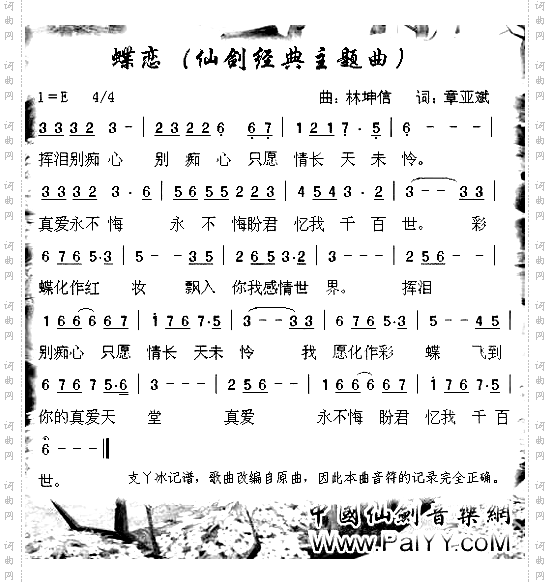 蝶恋（仙剑经典主题曲）
1=E 4/4 曲：林坤信 词：章亚斌
3 3 3 2 3 - | 2 3 2 2 6 6 7 | 1 2 1 7 · 5 | 6 - - - |
挥泪别痴心 别痴心只愿 情长天未怜。
3 3 3 2 3 · 6 | 5 6 5 5 2 2 3 | 4 5 4 3 · 2 | 3 - - 3 3 |
真爱永不悔 永不悔盼君 忆我千百世。 彩
6 7 6 5 3 | 5 - - 3 5 | 2 6 5 6 · 2 | 3 - - - | 2 5 6 - - |
蝶化作红 妆 飘入 你我感情世 界。 挥泪
1 6 6 6 6 7 | 1 7 6 7 · 5 | 3 - - 3 3 | 6 7 6 5 · 2 | 5 - - 4 5 |
别痴心只愿 情长天未怜 我 愿化作彩 蝶 飞到
6 7 6 7 5 · 6 | 3 - - - | 2 5 6 - - | 1 6 6 6 6 7 | 1 7 6 7 · 5 |
你的真爱天 堂 真爱 永不悔盼君 忆我千百
6 - - - ‖
世。 支丫冰记谱，歌曲改编自原曲，因此本曲音符的记录完全正确。
中國仙劍音樂網
www.PalYY.com
词曲网